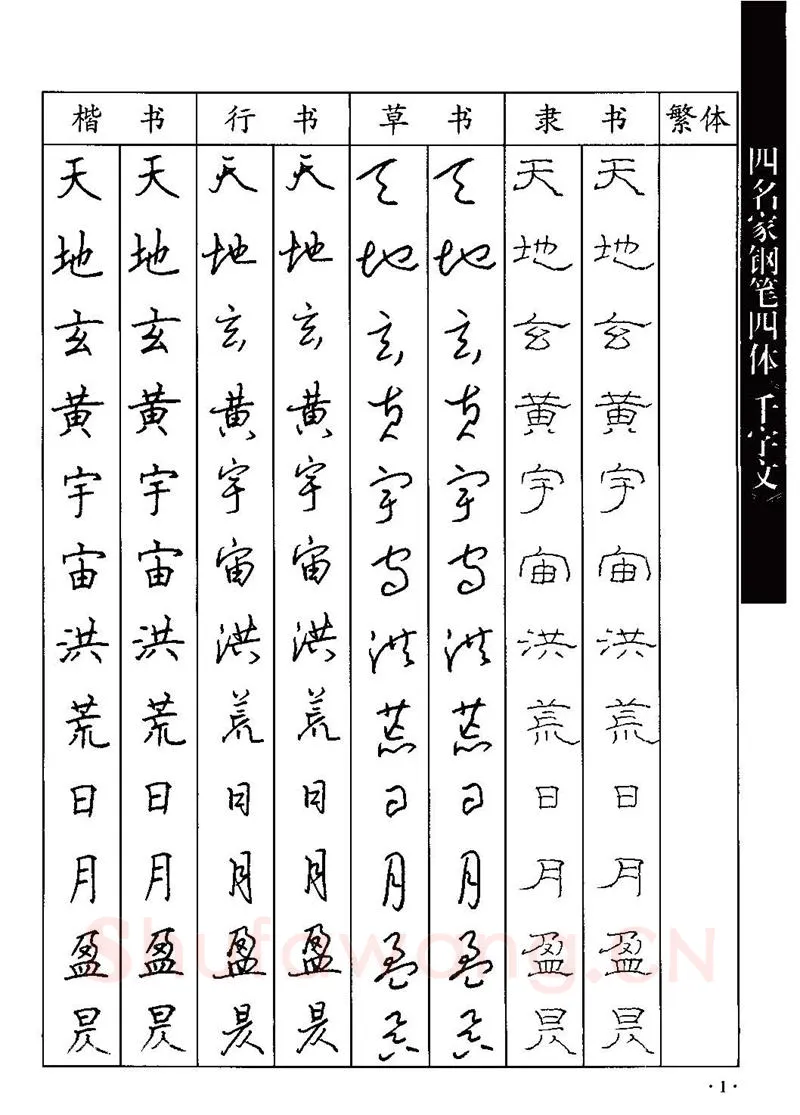 四名家钢笔四体《千字文》
楷书 行书 草书 隶书 繁体
天 天 天 天 天 天 天 天
地 地 地 地 地 地 地 地
玄 玄 玄 玄 玄 玄 玄 玄
黄 黄 黄 黄 黄 黄 黄 黄
宇 宇 宇 宇 宇 宇 宇 宇
宙 宙 宙 宙 宙 宙 宙 宙
洪 洪 洪 洪 洪 洪 洪 洪
荒 荒 荒 荒 荒 荒 荒 荒
日 日 日 日 日 日 日 日
月 月 月 月 月 月 月 月
盈 盈 盈 盈 盈 盈 盈 盈
Shufawang.CN
昃 昃 昃 昃 昃 昃 昃 昃
·1·